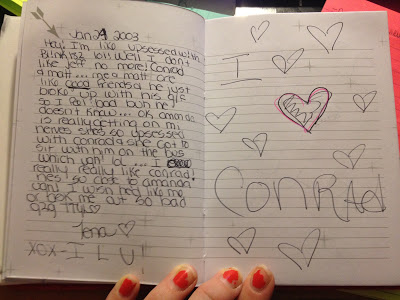 Jan 29 2003
Hey! I'm like upsessed with
Blink 182 lol! Well I don't
like Jeff no more! Conrad
a matt... me a matt are
like good friends a he just
broke up with his g/f
so I feel bad bun he
doesn't know... OK amanda
is really getting on mi
nerves shes so upsessed
with conrad she got to
sit with him on the bus
which yah! lol... I
really really like conrad!
hes so cute to amanda!
wah! I wish hed like me
or ask me out so bad
g2g TTYL
Jena
xox-I L U!
I
CONRAd